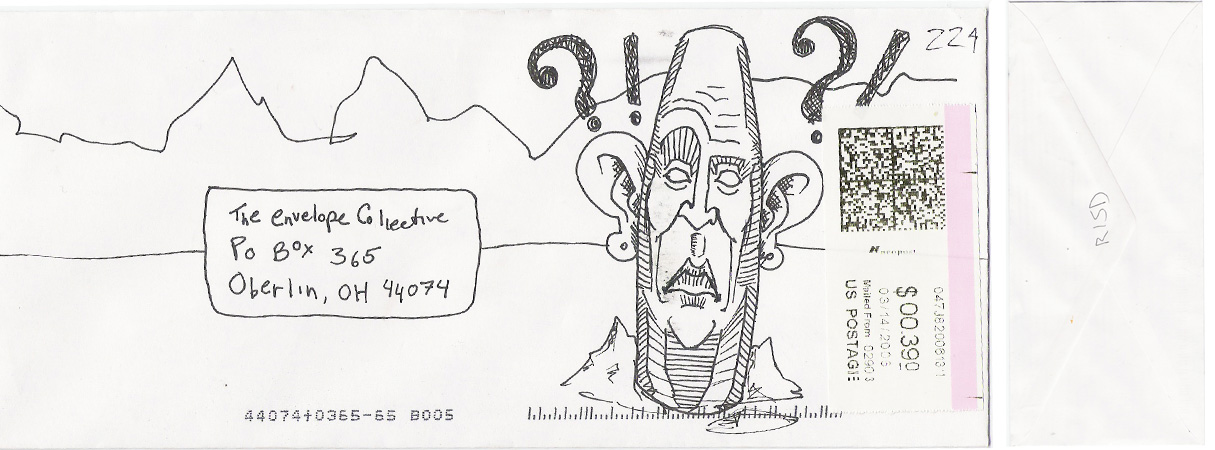 ?! ?!
224
The Envelope Collective
PO Box 365
Oberlin, OH 44074
neopost
$00.390
03/14/2006
Mailed From 02903
US POSTAGE
44074+0365-65 B005
RISD